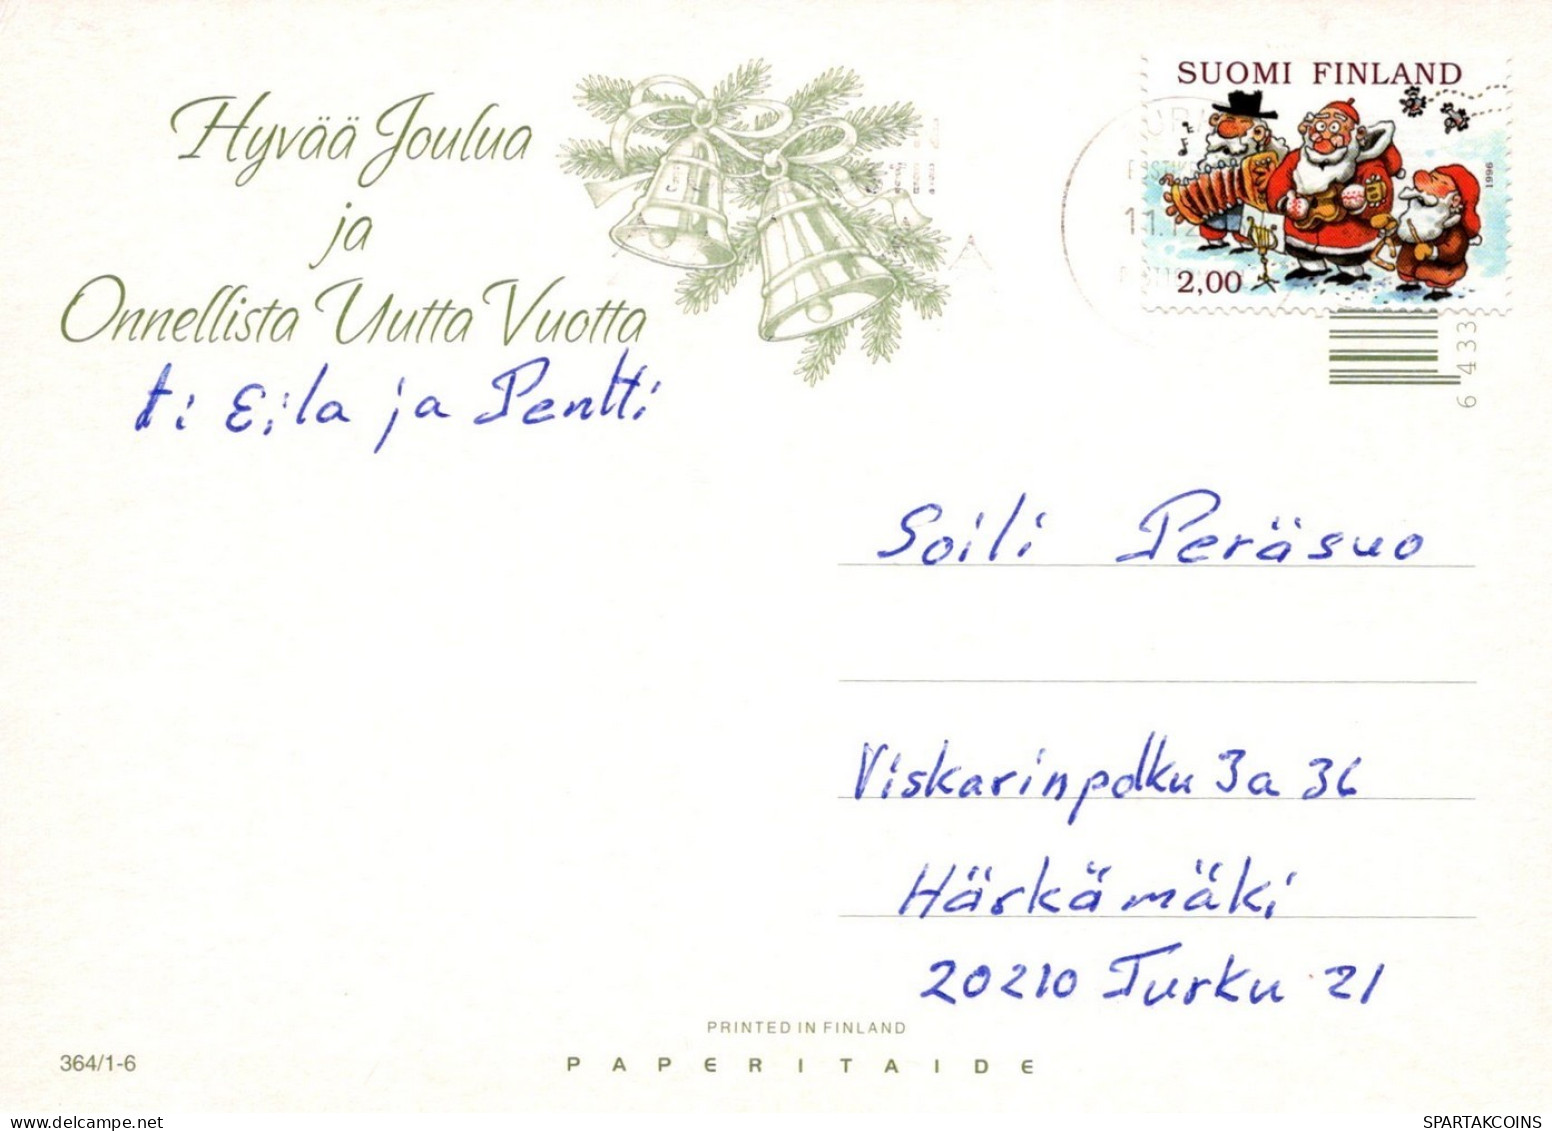 SUOMI FINLAND
1996
2,00
Hyvää Joulua
ja
Onnellista Uutta Vuotta
t: Eila ja Pentti
6 433
11.12
Soili Peräsuo
Viskarinpolku 3a 36
Härkämäki
20210 Turku 21
PRINTED IN FINLAND
364/1-6
PAPERITAIDE
SPARTAKCOINS
WWW.SPARTAKCOINS.COM